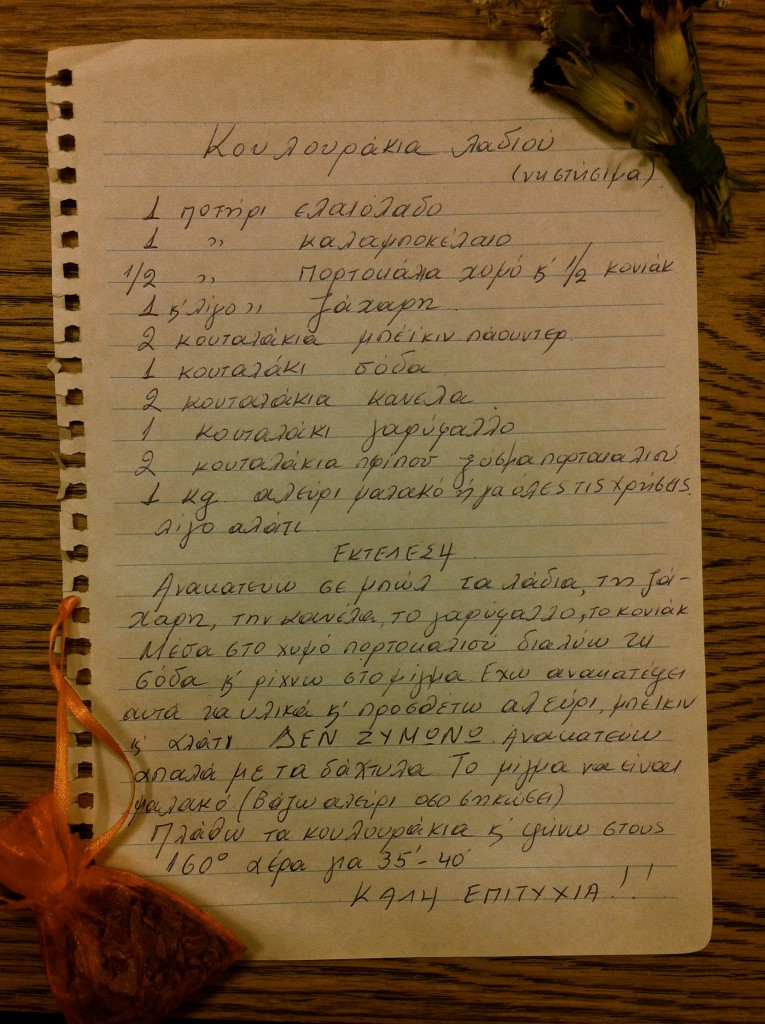 Κουλουράκια λαδιού
(νηστήσιμα)
1 ποτήρι ελαιόλαδο
1 " καλαμποκέλαιο
1/2 " πορτοκάλια χυμό κ' 1/2 κονιάκ
1 κ' λίγο " ζάχαρη
2 κουταλάκια μπέϊκιν πάουντερ
1 κουταλάκι σόδα
2 κουταλάκια κανέλα
1 κουταλάκι γαρύφαλλο
2 κουταλάκια περίπου ξύσμα πορτοκαλιού
1 kg. αλεύρι μαλακό ή για όλες τις χρήσεις.
λίγο αλάτι
ΕΚΤΕΛΕΣΗ
Ανακατεύω σε μπώλ τα λάδια, τη ζά-
χαρη, την κανέλα, το γαρύφαλλο, το κονιάκ
Μέσα στο χυμό πορτοκαλιού διαλύω τη
σόδα κ' ρίχνω στο μίγμα. Εχω ανακατέψει
αυτά τα υλικά κ' προσθέτω αλεύρι, μπέικιν
κ' αλάτι. ΔΕΝ ΖΥΜΩΝΩ. Ανακατεύω
απαλά με τα δάχτυλα. Το μίγμα να είναι
μαλακό (βάζω αλεύρι όσο σηκώσει)
Πλάθω τα κουλουράκια κ' ψήνω στους
160° αέρα για 35'-40'
ΚΑΛΗ ΕΠΙΤΥΧΙΑ!!!